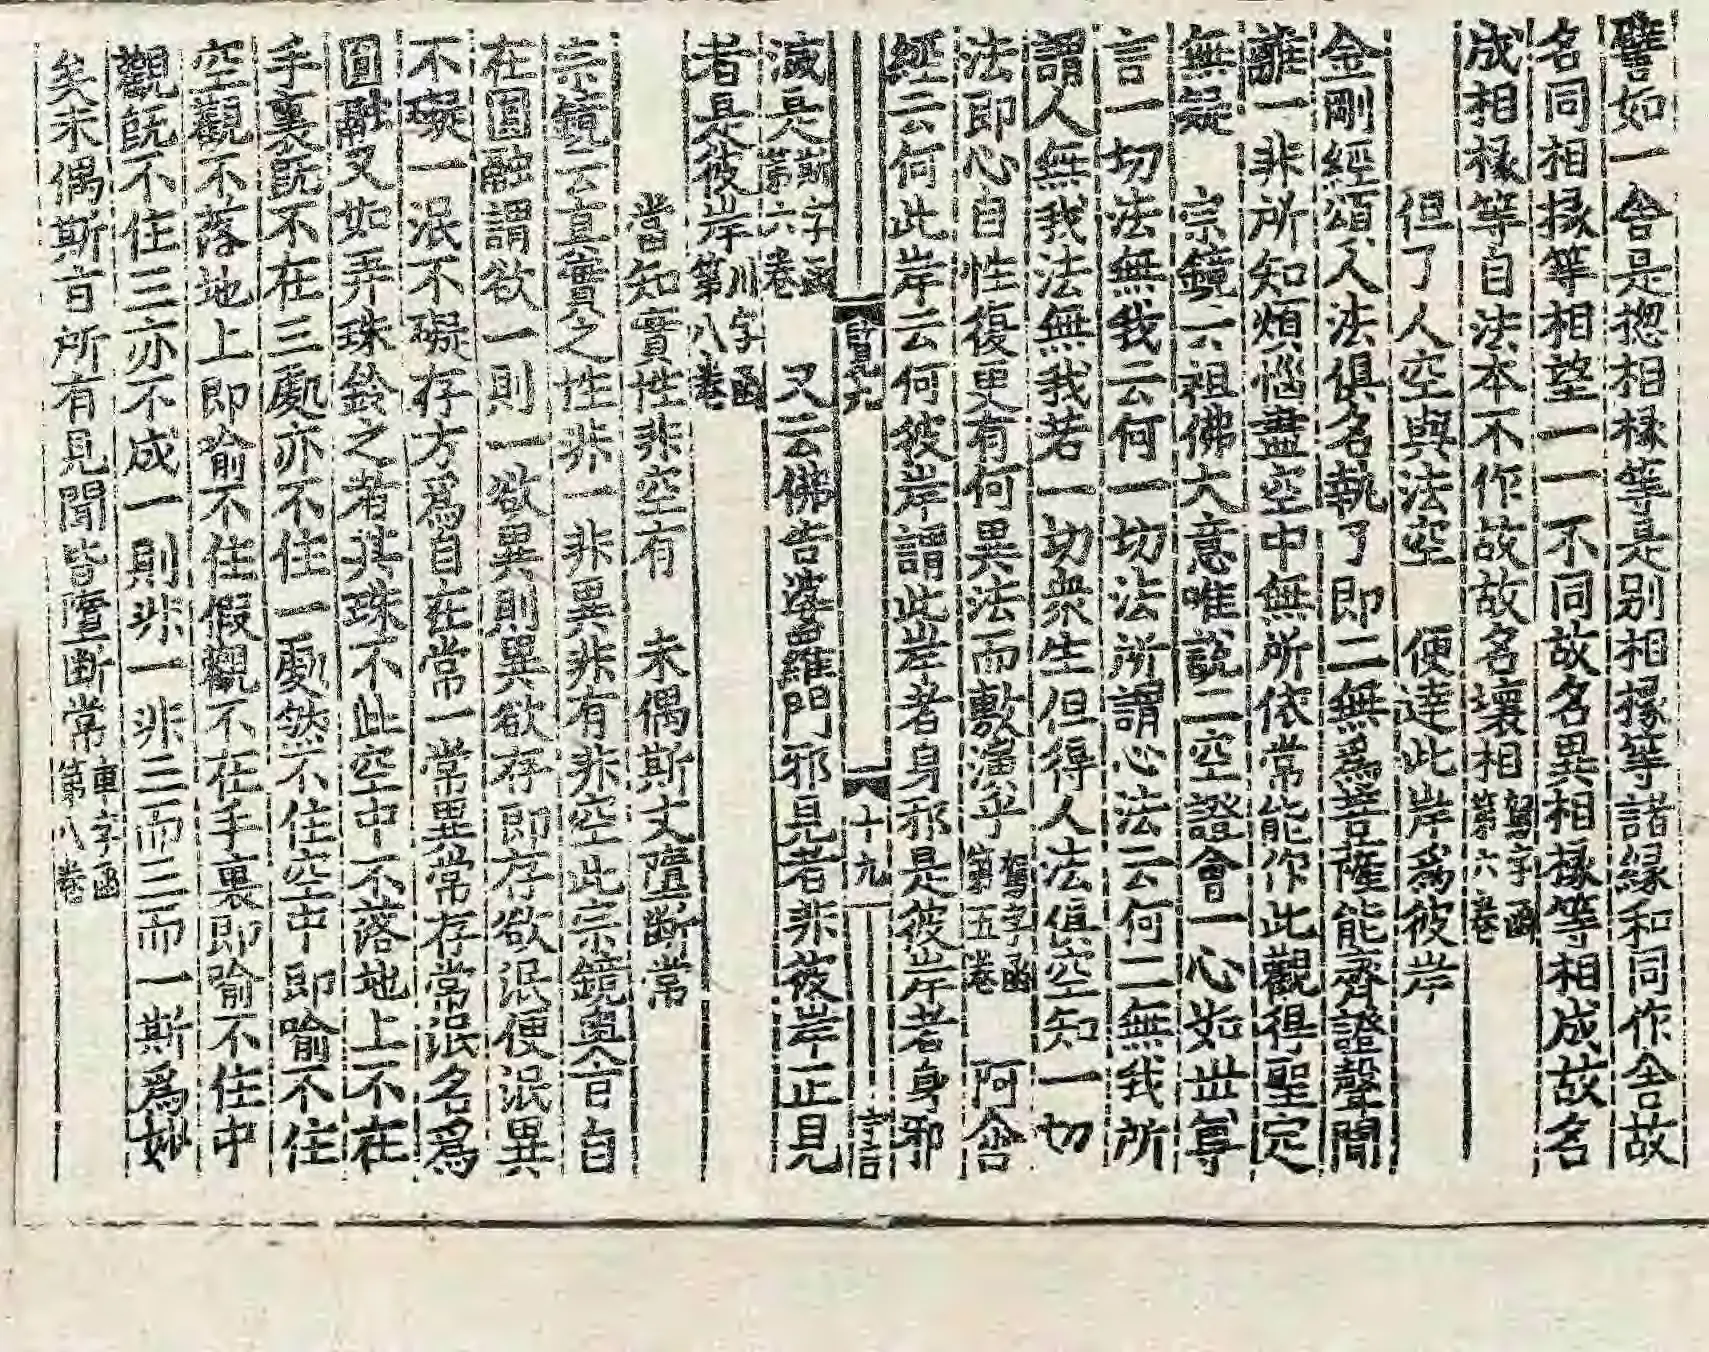 譬如一舍是揔相椽等是別相椽等諸緣和同作舍故
名同相椽等相望一一不同故名異相椽等相成故名
成相椽等自法本不作故故名壞相 駕字函第六卷
但了人空與法空 便達此岸爲彼岸
金剛經頌人法俱名執了即二無爲菩薩能齊證聲聞
離一非所知煩惱盡空中無所依常能作此觀得聖定
無疑 宗鏡六祖佛大意唯說二空證會一心如世尊
言一切法無我云何一切法所謂心法云何二無我所
謂人無我法無我若一切衆生但得人法俱空知一切
法即心自性復更有何異法而敷演乎 駕字函第五卷 阿含
經云何此岸云何彼岸謂此岸者身邪是彼岸者身邪
賢九 十九
滅是 前字函第六卷 又云佛告婆羅門邪見者非彼岸正見
者是彼岸 川字函第八卷
當知實性非空有 未偶斯文墮斷常
宗鏡云眞實之性非一非異非有非空此宗鏡奥旨自
在圓融謂欲一則一欲異則異欲存即存欲泯便泯異
不礙一泯不礙存方爲自在常一常異常存常泯名爲
圓融又如弄珠鈴之者其珠不此空中不落地上不在
手裏旣不在三處亦不住一處然不住空中即喻不住
空觀不落地上即喻不住假觀不在手裏即喻不住中
觀旣不住三亦不成一則非一非三而三而一斯爲妙
矣未偶斯言所有見聞皆墮斷常 車字函第八卷